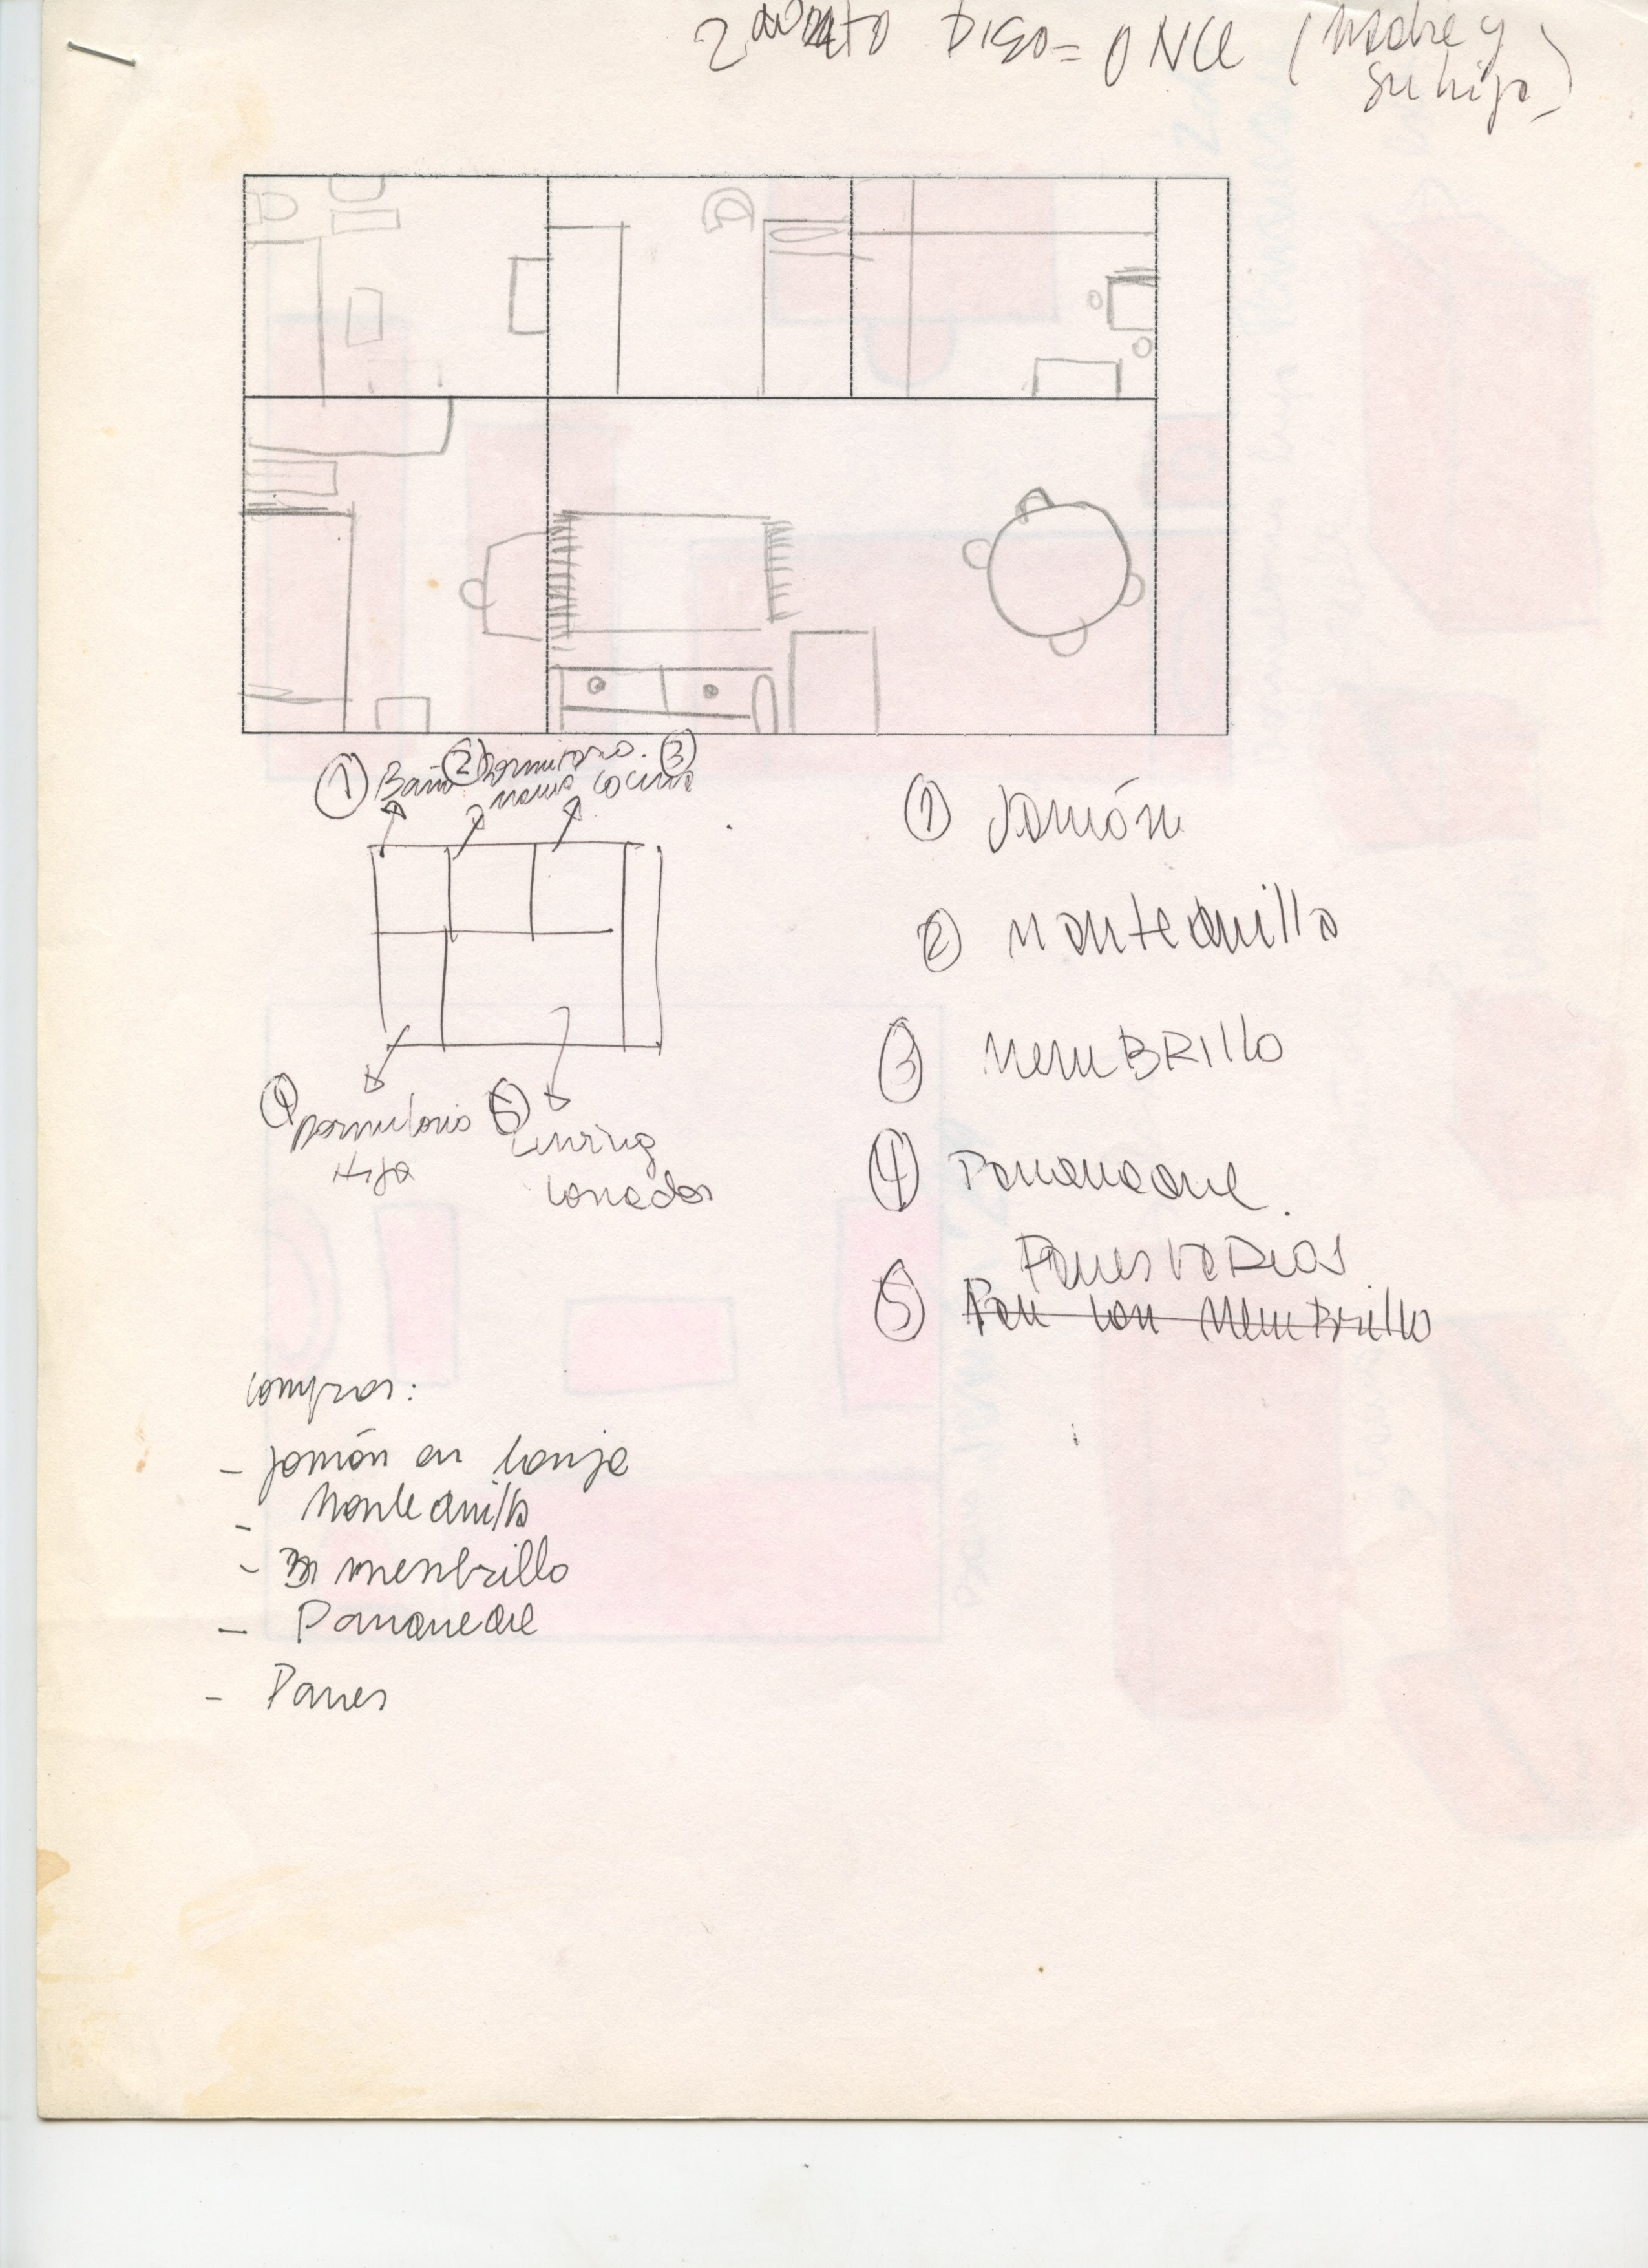 2 piso = ONCE (Madre y
su hija)
① Baño ② Dormitorio. ③
mamá cocina
④ Dormitorio ⑤ Living
Hija comedor
① Jamón
② Mantequilla
③ MemBRIllo
④ Panqueque.
Panes vaRios
⑤ Pan con MemBrillo
compras:
- jamón en lonja
- Mantequilla
- membrillo
- Panqueque
- Panes